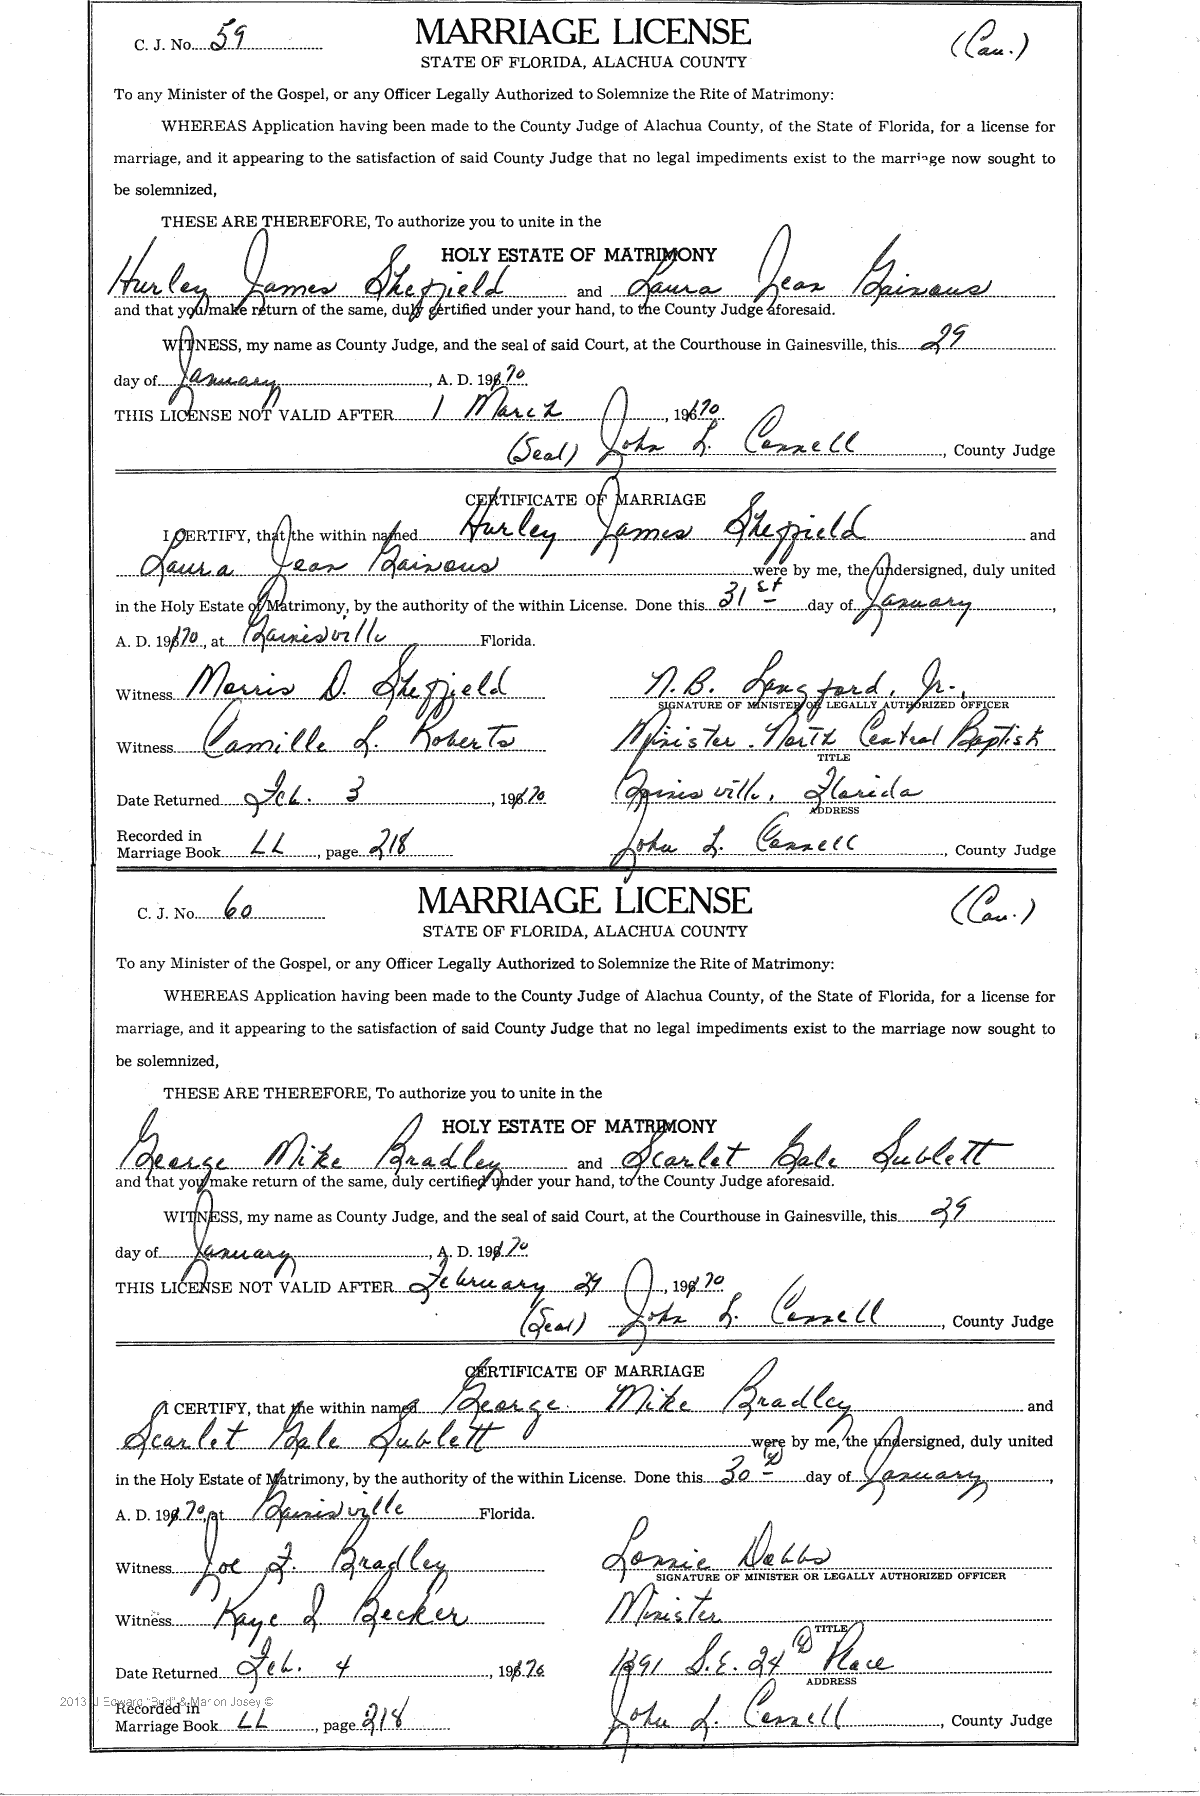 C. J. No. 59
MARRIAGE LICENSE
(Cau.)
STATE OF FLORIDA, ALACHUA COUNTY
To any Minister of the Gospel, or any Officer Legally Authorized to Solemnize the Rite of Matrimony:
WHEREAS Application having been made to the County Judge of Alachua County, of the State of Florida, for a license for
marriage, and it appearing to the satisfaction of said County Judge that no legal impediments exist to the marriage now sought to
be solemnized,
THESE ARE THEREFORE, To authorize you to unite in the
HOLY ESTATE OF MATRIMONY
Hurley James Sheffield and Laura Jean Gainous
and that you make return of the same, duly certified under your hand, to the County Judge aforesaid.
WITNESS, my name as County Judge, and the seal of said Court, at the Courthouse in Gainesville, this 29
day of January, A. D. 1970
THIS LICENSE NOT VALID AFTER 1 March, 1970
(Seal) John L. Connell, County Judge
CERTIFICATE OF MARRIAGE
I CERTIFY, that the within named Hurley James Sheffield and
Laura Jean Gainous were by me, the undersigned, duly united
in the Holy Estate of Matrimony, by the authority of the within License. Done this 31st day of January,
A. D. 1970, at Gainisville Florida.
Witness Morris D. Sheffield N. B. Langford, Jr.,
SIGNATURE OF MINISTER OR LEGALLY AUTHORIZED OFFICER
Witness Camille L. Roberts Minister. North Central Baptist
TITLE
Date Returned Feb. 3, 1970 Gainisville, Florida
ADDRESS
Recorded in
Marriage Book LL, page 218 John L. Connell, County Judge
C. J. No. 60
MARRIAGE LICENSE
(Cau.)
STATE OF FLORIDA, ALACHUA COUNTY
To any Minister of the Gospel, or any Officer Legally Authorized to Solemnize the Rite of Matrimony:
WHEREAS Application having been made to the County Judge of Alachua County, of the State of Florida, for a license for
marriage, and it appearing to the satisfaction of said County Judge that no legal impediments exist to the marriage now sought to
be solemnized,
THESE ARE THEREFORE, To authorize you to unite in the
HOLY ESTATE OF MATRIMONY
George Mike Bradley and Scarlet Gale Sublett
and that you make return of the same, duly certified under your hand, to the County Judge aforesaid.
WITNESS, my name as County Judge, and the seal of said Court, at the Courthouse in Gainesville, this 29
day of January, A. D. 1970
THIS LICENSE NOT VALID AFTER February 27, 1970
(Seal) John L. Connell, County Judge
CERTIFICATE OF MARRIAGE
I CERTIFY, that the within named George Mike Bradley and
Scarlet Gale Sublett were by me, the undersigned, duly united
in the Holy Estate of Matrimony, by the authority of the within License. Done this 30th day of January,
A. D. 1970, at Gainisville Florida.
Witness Joe F. Bradley Lonnie Dobbs
SIGNATURE OF MINISTER OR LEGALLY AUTHORIZED OFFICER
Witness Kaye I Becker Minister
TITLE
Date Returned Feb. 4, 1970 1891 S.E. 24th Place
ADDRESS
2013 J Edward "Bud" & Marion Josey ©
Recorded in
Marriage Book LL, page 218 John L. Connell, County Judge